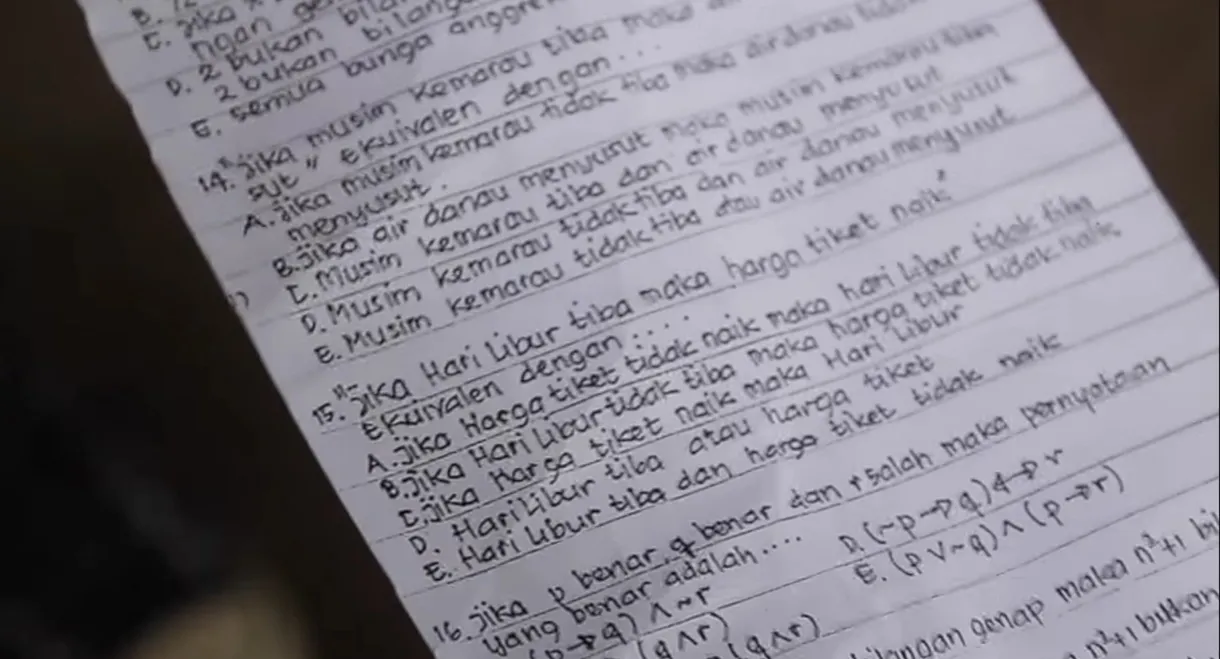 C. jika
ngan
D. 2 bukan
2 bukan bilang
E. semua bunga anggre
14. "Jika musim kemarau tiba maka
sut" ekuivalen dengan....
A. Jika musim kemarau tidak tiba maka air danau tidak
menyusut.
B. Jika air danau menyusut maka musim kemarau tiba
C. Musim kemarau tiba dan air danau menyusut
D. Musim kemarau tidak tiba dan air danau menyusut
E. Musim kemarau tidak tiba atau air danau menyusut
15. "Jika Hari Libur tiba maka harga tiket naik"
Ekuivalen dengan....
A. Jika Harga tiket tidak naik maka hari libur tidak tiba
B. Jika Hari Libur tidak tiba maka harga tiket tidak naik
C. Jika Harga tiket naik maka Hari Libur
D. Hari Libur tiba atau harga tiket
E. Hari Libur tiba dan harga tiket tidak naik
16. Jika p benar, q benar dan r salah maka pernyataan
yang benar adalah....
D. (~p→q)↔r
→q) ∧ ~r
E. (p∨~q)∧(p→r)
(q∧r)
(q∧r)
bilangan genap maka n²+1 bil
n²+1 bukan